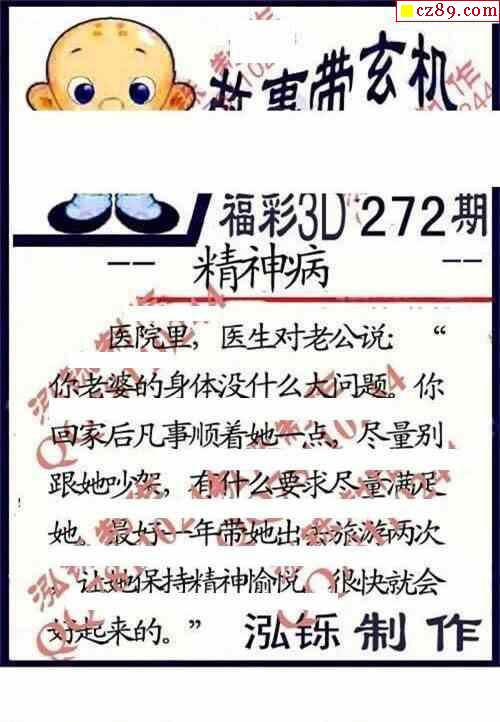 cz89.com
故事带玄机
福彩3D 272期
-- 精神病 --
医院里，医生对老公说：“
你老婆的身体没什么大问题。你
回家后凡事顺着她一点，尽量别
跟她吵架，有什么要求尽量满足
她。最好一年带她出去旅游两次
，让她保持精神愉悦，很快就会
好起来的。” 泓铄制作